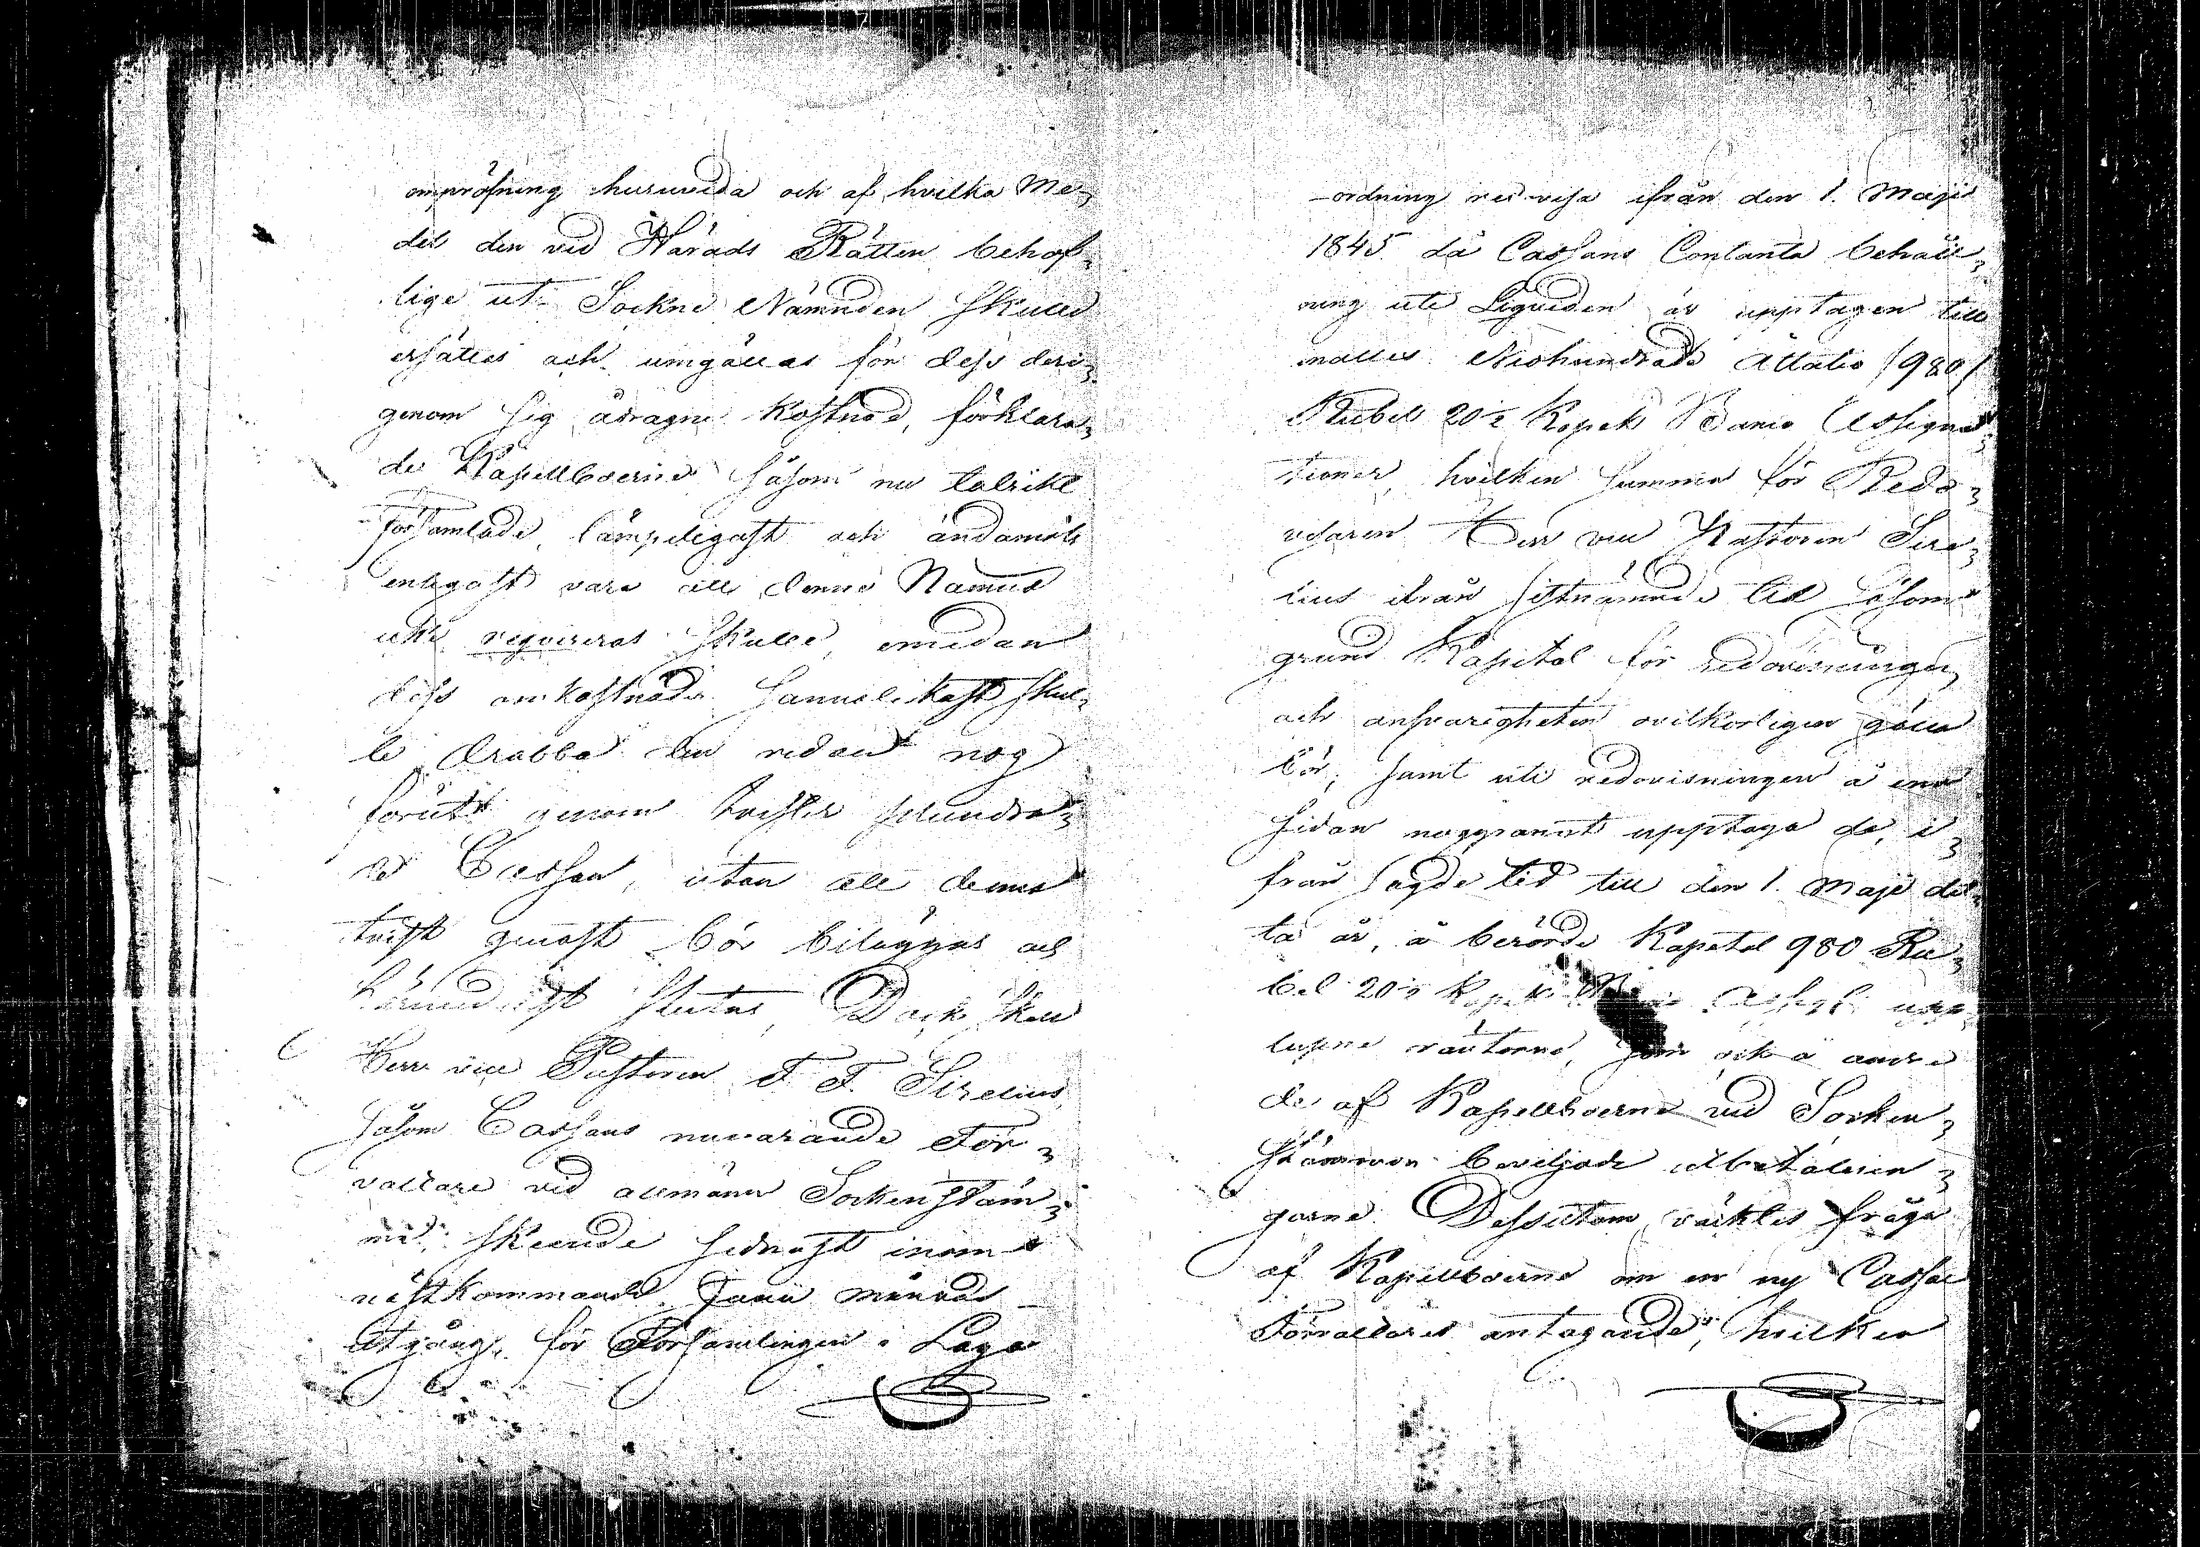 ompröfning huruvida och af hvilka Me-
del den vid Härads Rätten behöf-
lige ut Sockne Nämnden skulle
ersättes och umgällas för dess deri-
genom sig ådragne kostnad, förklara-
de Kapellboerne såsom nu talrikt
församlade, lämpeligast och ändamåls
enligast vara att denne Nämnd
icke reqvireras skulle, emedan
dess omkostnader sannolikast skul-
le drabba den redan nog
förut genom tvister
Cassan, utan att denna
tvist genast bör biläggas och
slutas, Dock skall
Herr vice Pastoren F. F. Sirelius
såsom Cassans nuvarande För-
valtare vid allmänn Sockenstäm-
ma, skeende sednast inom
nästkommande Junii månads
utgång, för Församlingen i Laga
-ordning redovisa ifrån den 1. Maji
1845 då Cassans Contanta behåll-
ning uti Liqviden är upptagen till
Niohundrade Åttatio /980/
Rubel 20½ Kopek Banco Assigna-
tioner, hvilken summa för Redo-
visaren Herr vice Pastoren Sire-
lius ifrån sistnämnde tid såsom
grund Kapital för redovisningen
och ansvarigheten ovilkorligen gälla
bör, samt uti redovisningen å ena
sidan noggrannt upptaga de, i-
från sagde tid till den 1. Maji det-
ta år, å berörde Kapital 980 Ru-
bel 20½ Kopek upp-
lupne räntorne, som ock å andre
de af Kapellboerne vid Socken-
stämman beviljade utbetalnin-
garne. Dessutom väcktes fråga
af Kapellboerne om en ny Cassae
Förvaltares antagande, hvilken